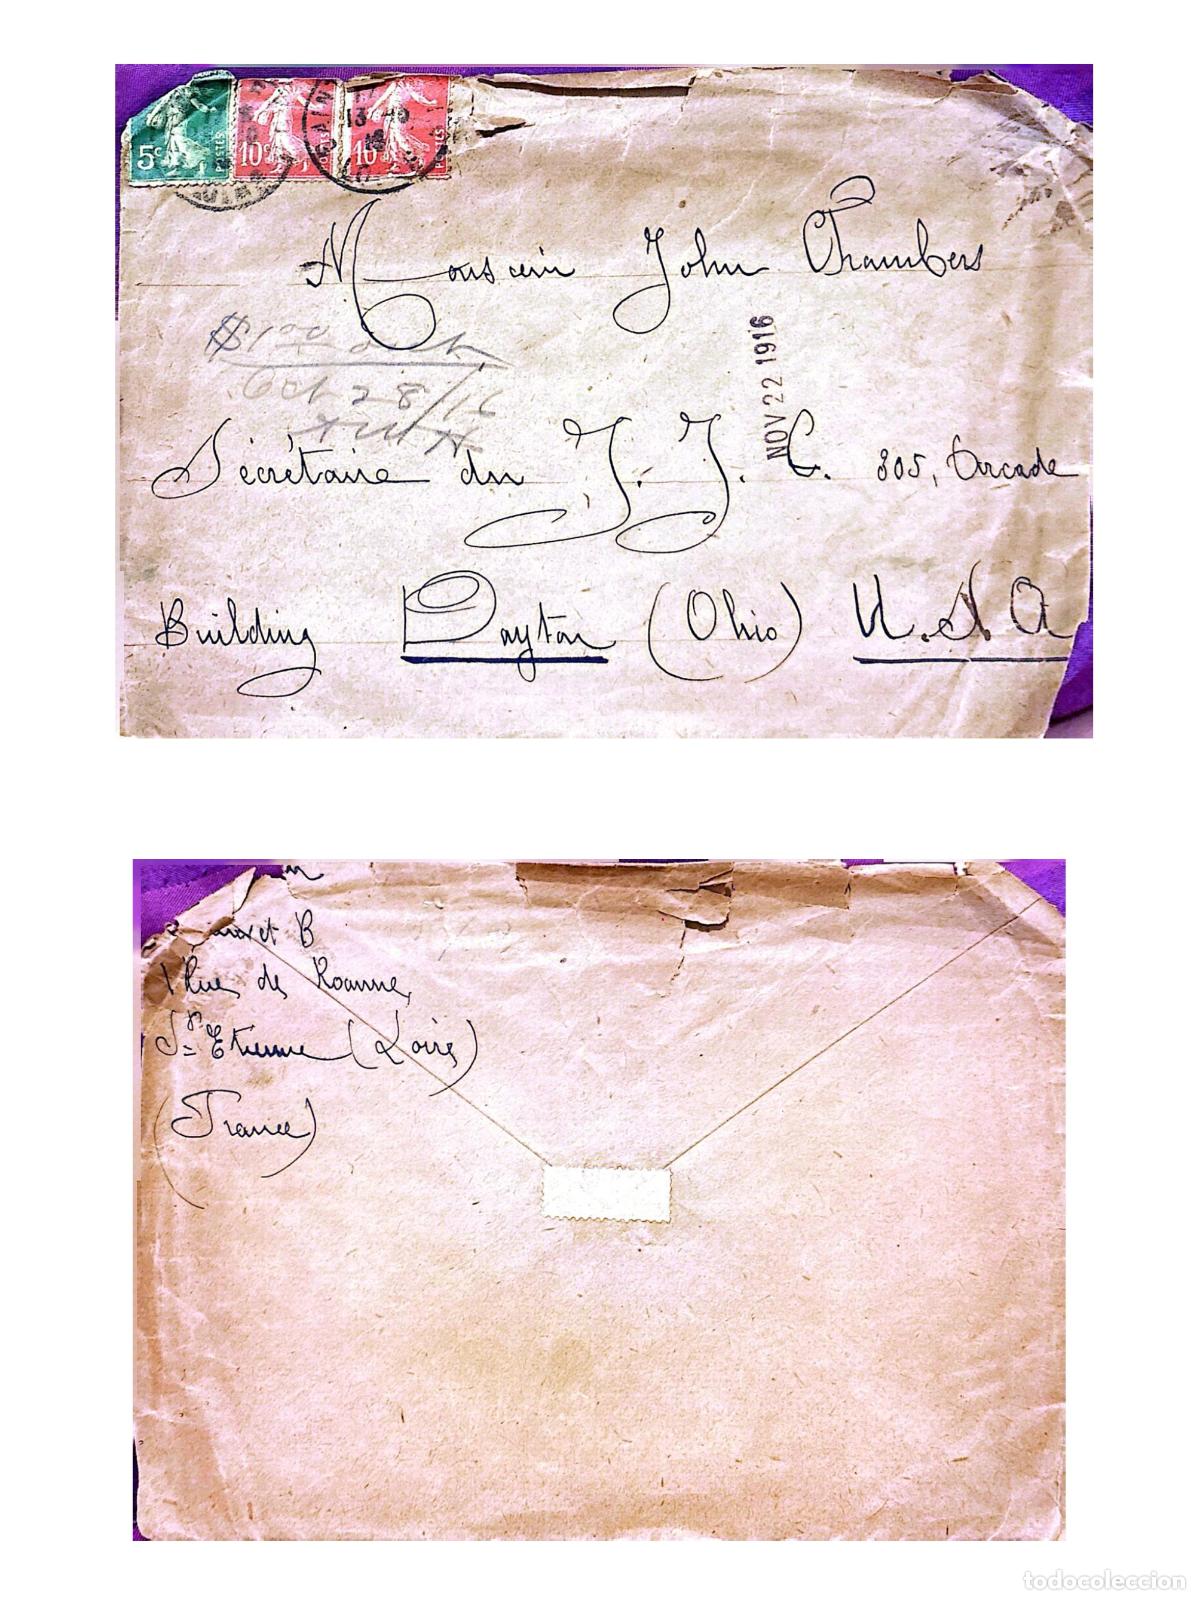 5c POSTES 10c POSTES 10c POSTES
Monsieur John Chambers
NOV 22 1916
$1.00
Oct 28/16
Sécrétaire du J. J. C. 305, Arcade
Building Dayton (Ohio) U.S.A
B
1 Rue de Roanne,
St Etienne (Loire)
(France)
todocoleccion